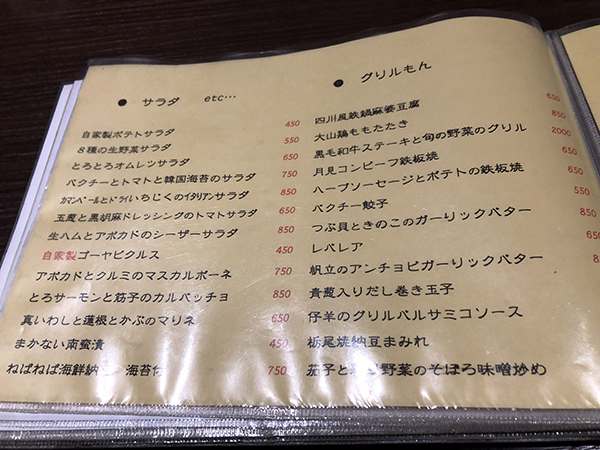 ● サラダ etc…
自家製ポテトサラダ 450
8種の生野菜サラダ 550
とろとろオムレツサラダ 650
パクチーとトマトと韓国海苔のサラダ 750
カマンベールとドライいちじくのイタリアンサラダ 850
玉葱と黒胡麻ドレッシングのトマトサラダ 650
生ハムとアボカドのシーザーサラダ 850
自家製ゴーヤピクルス 450
アボカドとクルミのマスカルポーネ 750
とろサーモンと筋子のカルパッチョ 850
真いわしと蓮根とかぶのマリネ 650
まかない南蛮漬 450
ねばねば海鮮納 海苔付 750
● グリルもん
四川風鉄鍋麻婆豆腐 650
大山鶏ももたたき 850
黒毛和牛ステーキと旬の野菜のグリル 2000
月見コンビーフ鉄板焼 650
ハーブソーセージとポテトの鉄板焼 850
パクチー餃子 550
つぶ貝ときのこのガーリックバター
レバレア
帆立のアンチョビガーリックバター
青葱入りだし巻き玉子
仔羊のグリルバルサミコソース
栃尾焼納豆まみれ
茄子と 野菜のそぼろ味噌炒め